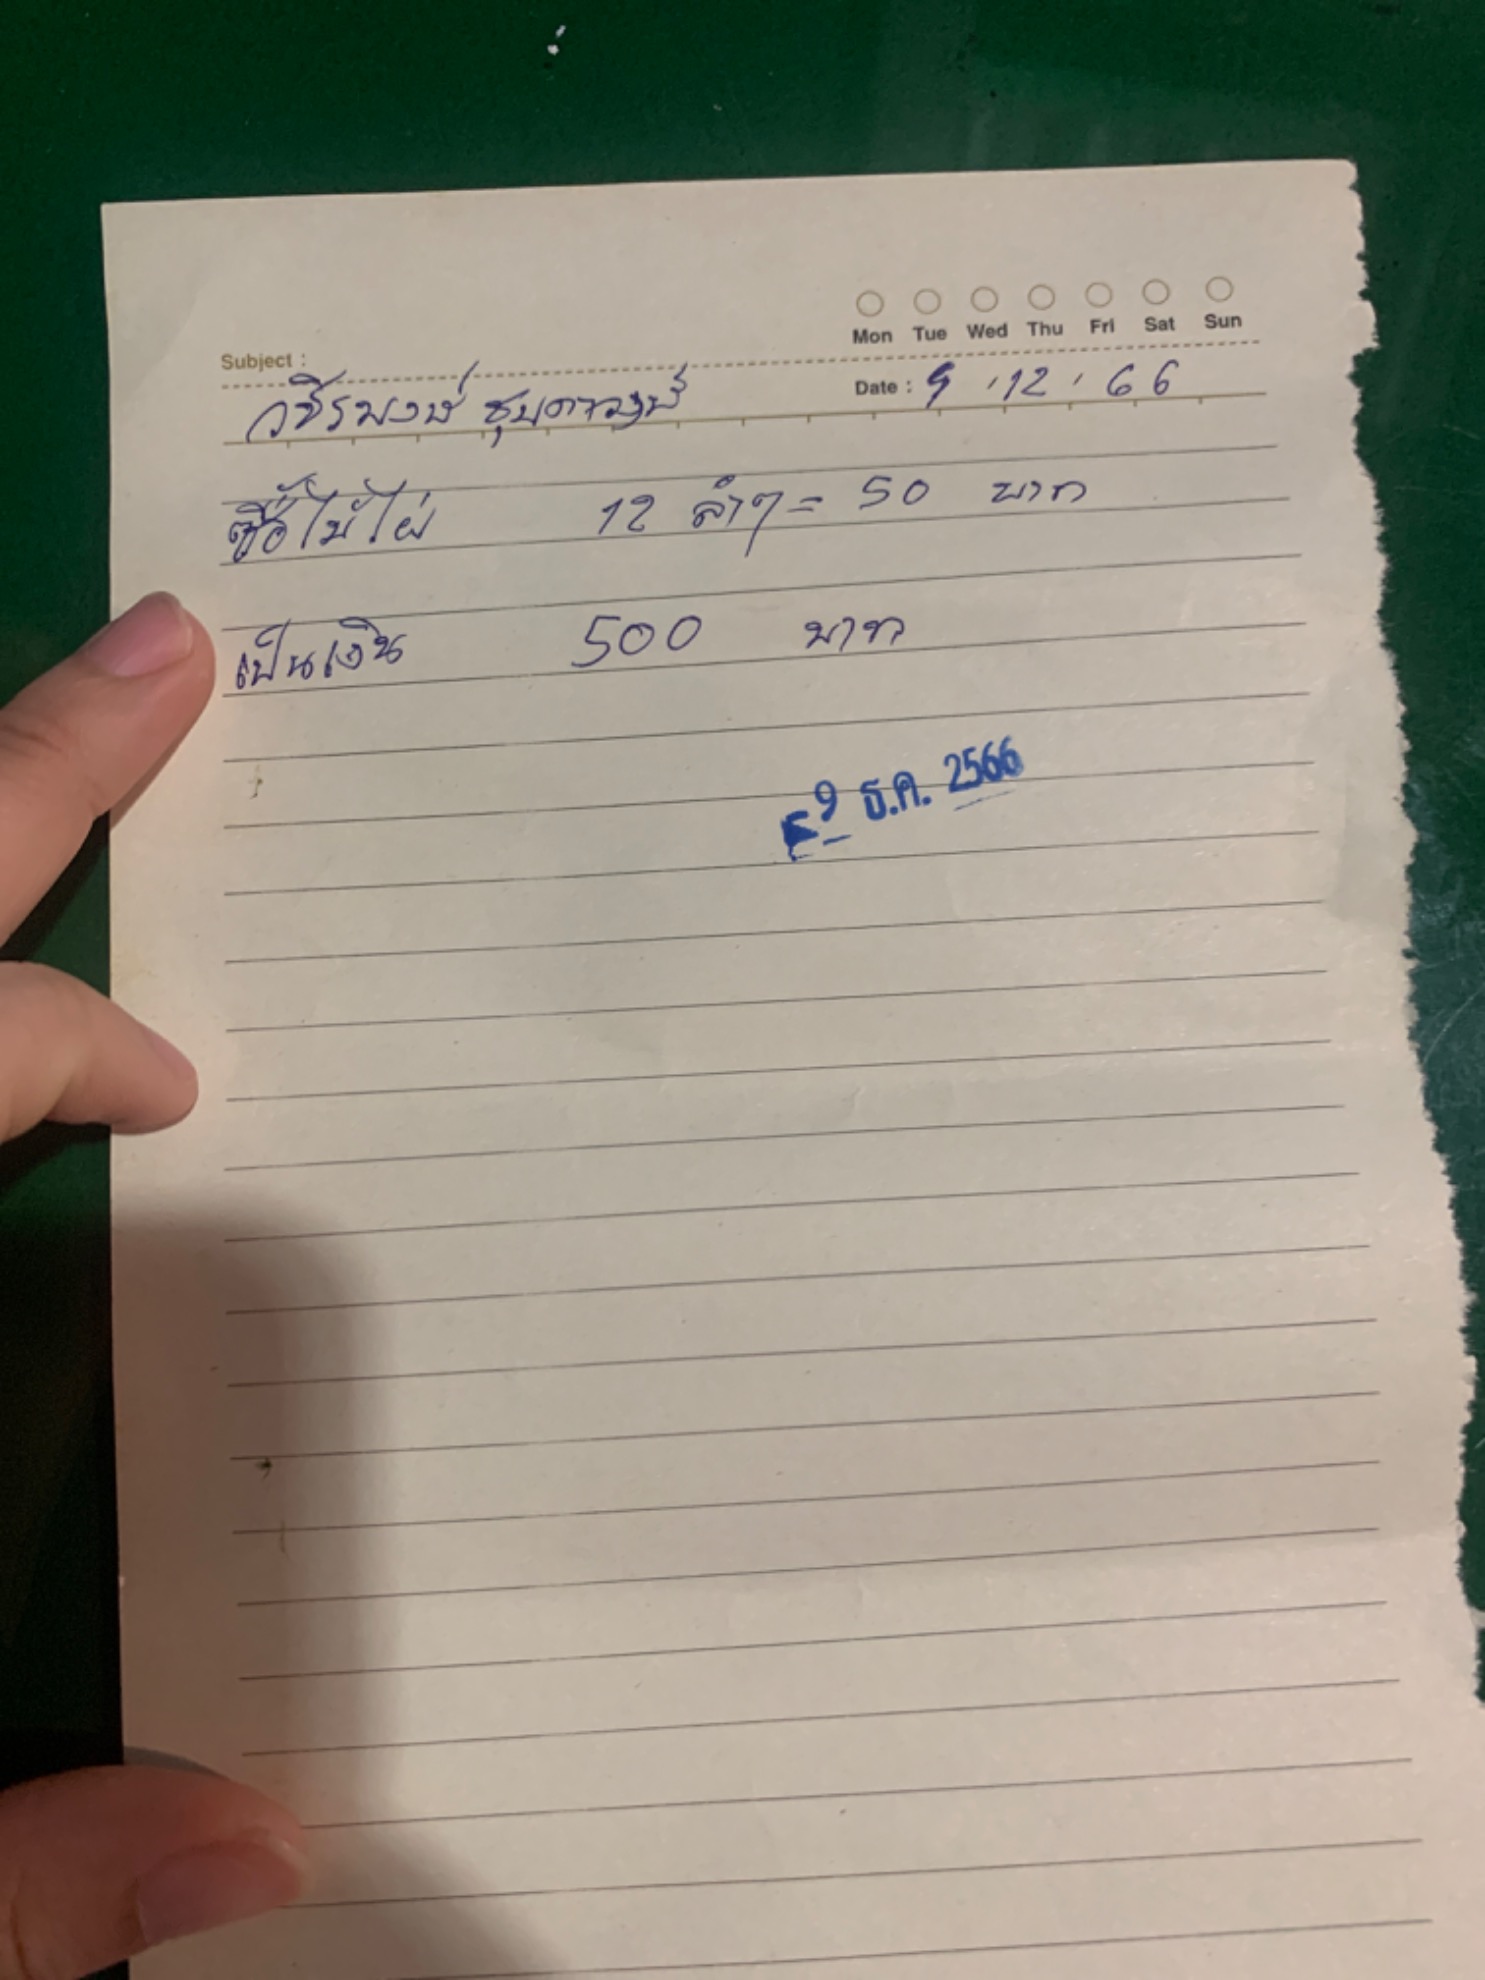 Mon Tue Wed Thu Fri Sat Sun
Subject :
Date : 9 . 12 . 66
วชิรพงษ์
ซื้อไม้ไผ่ 12 ลำๆ = 50 บาท
เป็นเงิน 500 บาท
9 ธ.ค. 2566